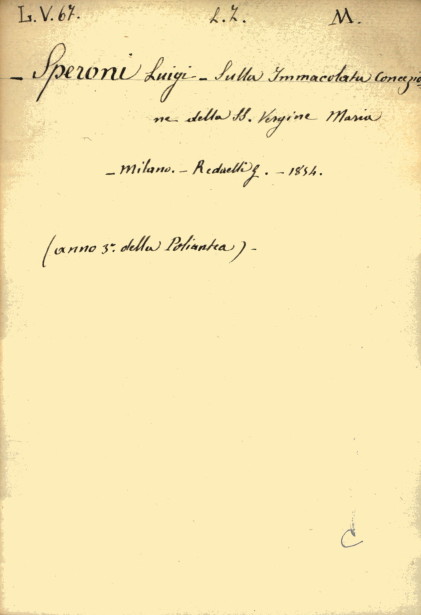 L.V.67. L.Z. M.
- Speroni Luigi - Sulla Immacolata Concezio
ne della SS. Vergine Maria
- Milano. - Redaelli G. - 1854.
(anno 3º. della Poliantea) -